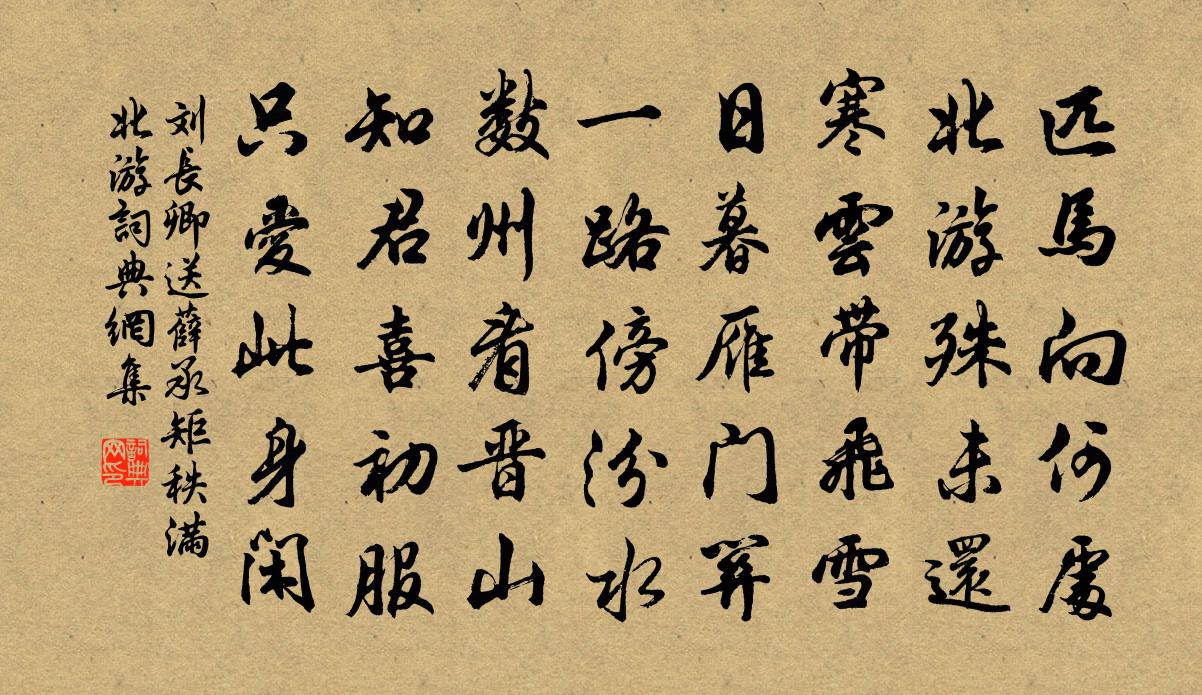 匹馬向何處
北游殊未還
寒雲带飛雪
日暮雁门關
一路傍汾水
数州看晋山
知君喜初服
只愛此身闲
刘長卿送薛承矩秩满
北游詞典網集
詞典网印